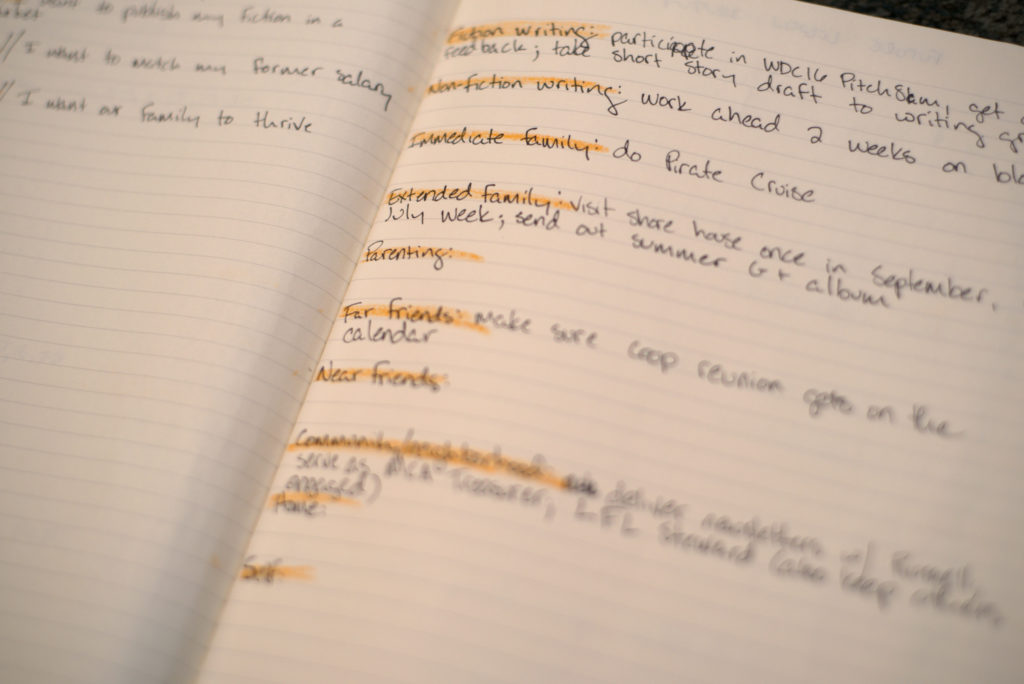 want to publish my fiction in a
// I want to match my former salary
// I want our family to thrive
Fiction writing: participate in WDC16 PitchSlam, get
feedback; take short story draft to writing
Non-fiction writing: work ahead 2 weeks on
Immediate family: do Pirate Cruise
Extended family: visit shore house once in September,
July week; send out summer G+ album
Parenting:
Far friends: make sure coop reunion gets on the
calendar
Near friends:
Community/neighborhood: deliver newsletters w/
serve as Treasurer; LFL Steward (also keep
engaged)
Home:
Self: